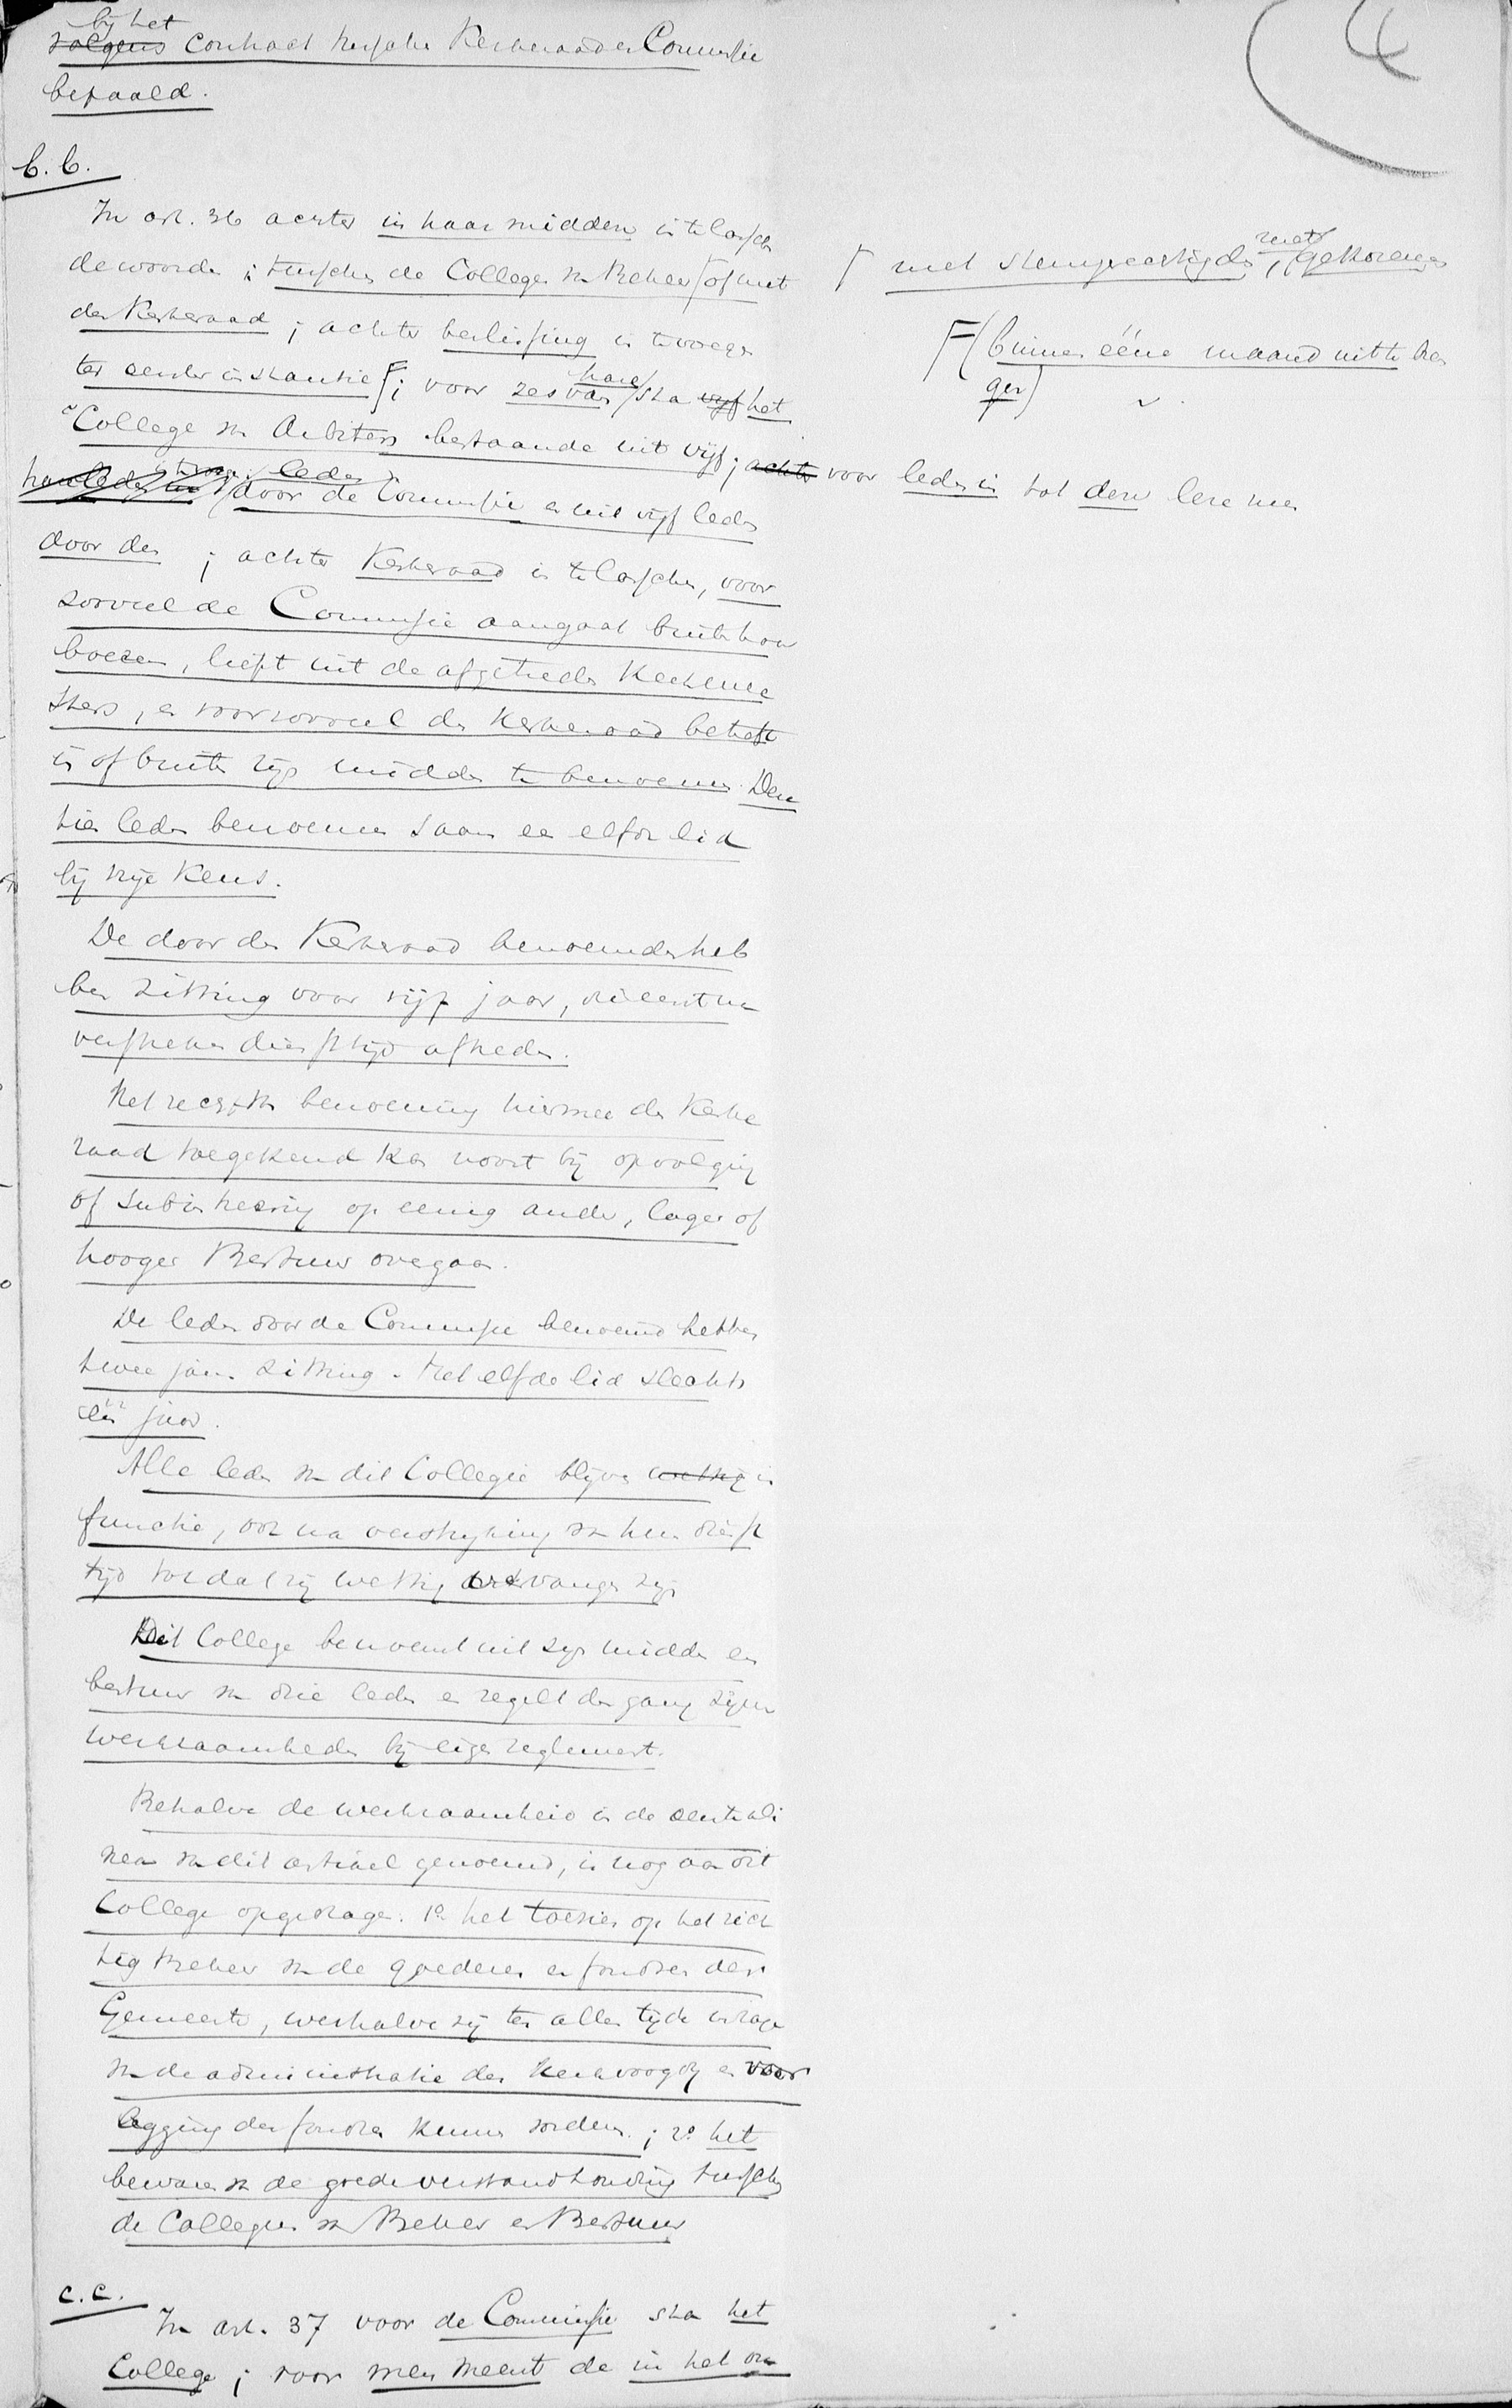 bij het
volgens contract tusschen Kerkeraad en Commissie
bepaald.
4
b.b.
In art. 36 achter in haar midden in te lasschen
de woorden ; tusschen de Collegien van Beheer of met
den Kerkeraad ; achter beslissing in te voegen
ter eerster instantie ; voor zes van hare sta vijf het
College van Arbiters bestaande uit vijf ; achter voor leden in tot den leze men
leden
door de Commissie en uit vijf leden
door den ; achter Kerkeraad in te lasschen, voor
zooveel de Commissie aangaat buiten haar
boezem, liefst uit de afgetreden Kerkmees
ters, en voor zooveel den Kerkeraad betreft
in of buiten zijn midden te benoemen. Deze
tien leden benoemen saam een elfde lid
bij vrije keus.
De door den Kerkeraad benoemden heb
ben zitting voor vijf jaar,
verstreken diensttijd aftreden.
Het recht van benoeming hiermee den Kerke
raad toegekend kan nooit bij opvolging
of op eenig ander, lager of
hooger Bestuur overgaan.
De leden door de Commissie benoemd hebben
twee jaar zitting. Het elfde lid slechts
één jaar.
Alle leden van dit Collegie blijven wettig in
functie, ook na verstrijking van hun dienst
tijd totdat zij wettig vervangen zijn
Dit College benoemt uit zijn midden een
bestuur van drie leden en regelt den gang zijner
werkzaamheden bij eigen reglement.
Behalve de werkzaamheid in de eerste ali
nea van dit artikel genoemd, is nog aan dit
College opgedragen. 1o het toezien op het rich
tig Beheer van de goederen en fondsen der
Gemeente, weshalve zij ten allen tijde inzage
van de administratie der Kerkvoogdij en voor
legging der fondsen kunnen vorderen ; 2o het
bewaren van de goede verstandhouding tusschen
de Collegien van Beheer en Bestuur
c.c.
In art. 37 voor de Commissie sta het
College ; voor men meent de in het on
met stemgerechtigde, niet gekozenen
(binnen ééne maand uit te bren
gen)